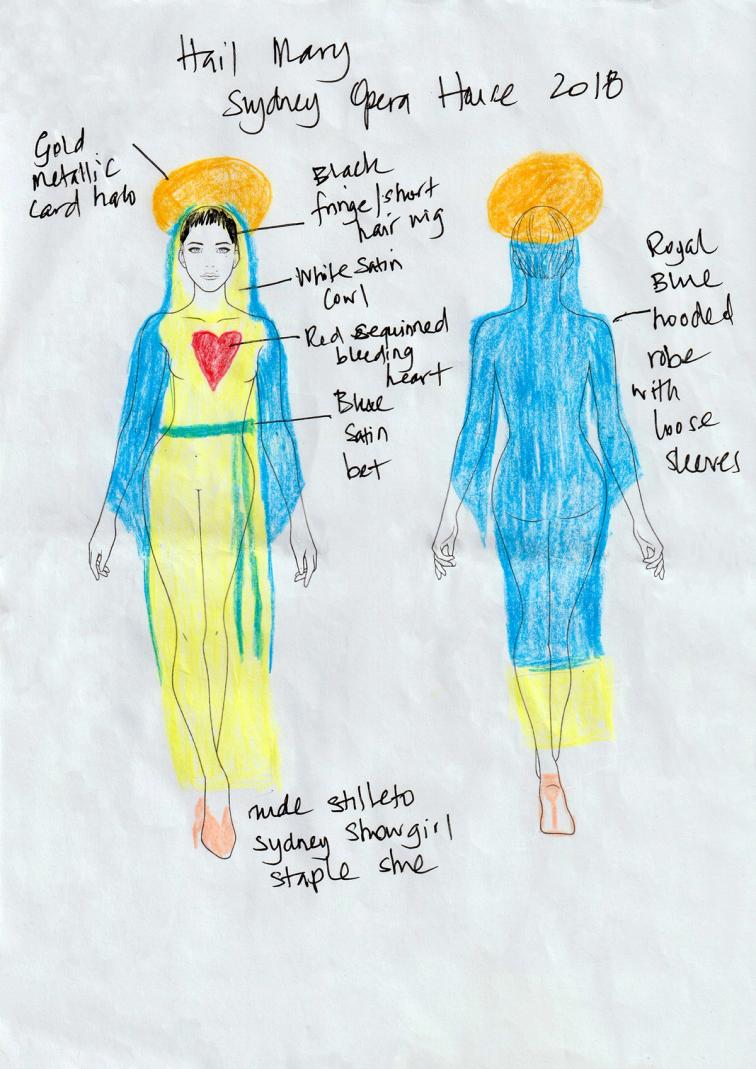 Hail Mary
Sydney Opera House 2018
Gold
metallic
card halo
Black
fringe/short
hair wig
White Satin
Cowl
Red sequinned
bleeding
heart
Blue
Satin
belt
Royal
Blue
hooded
robe
with
loose
sleeves
nude stilleto
Sydney Showgirl
staple shoe